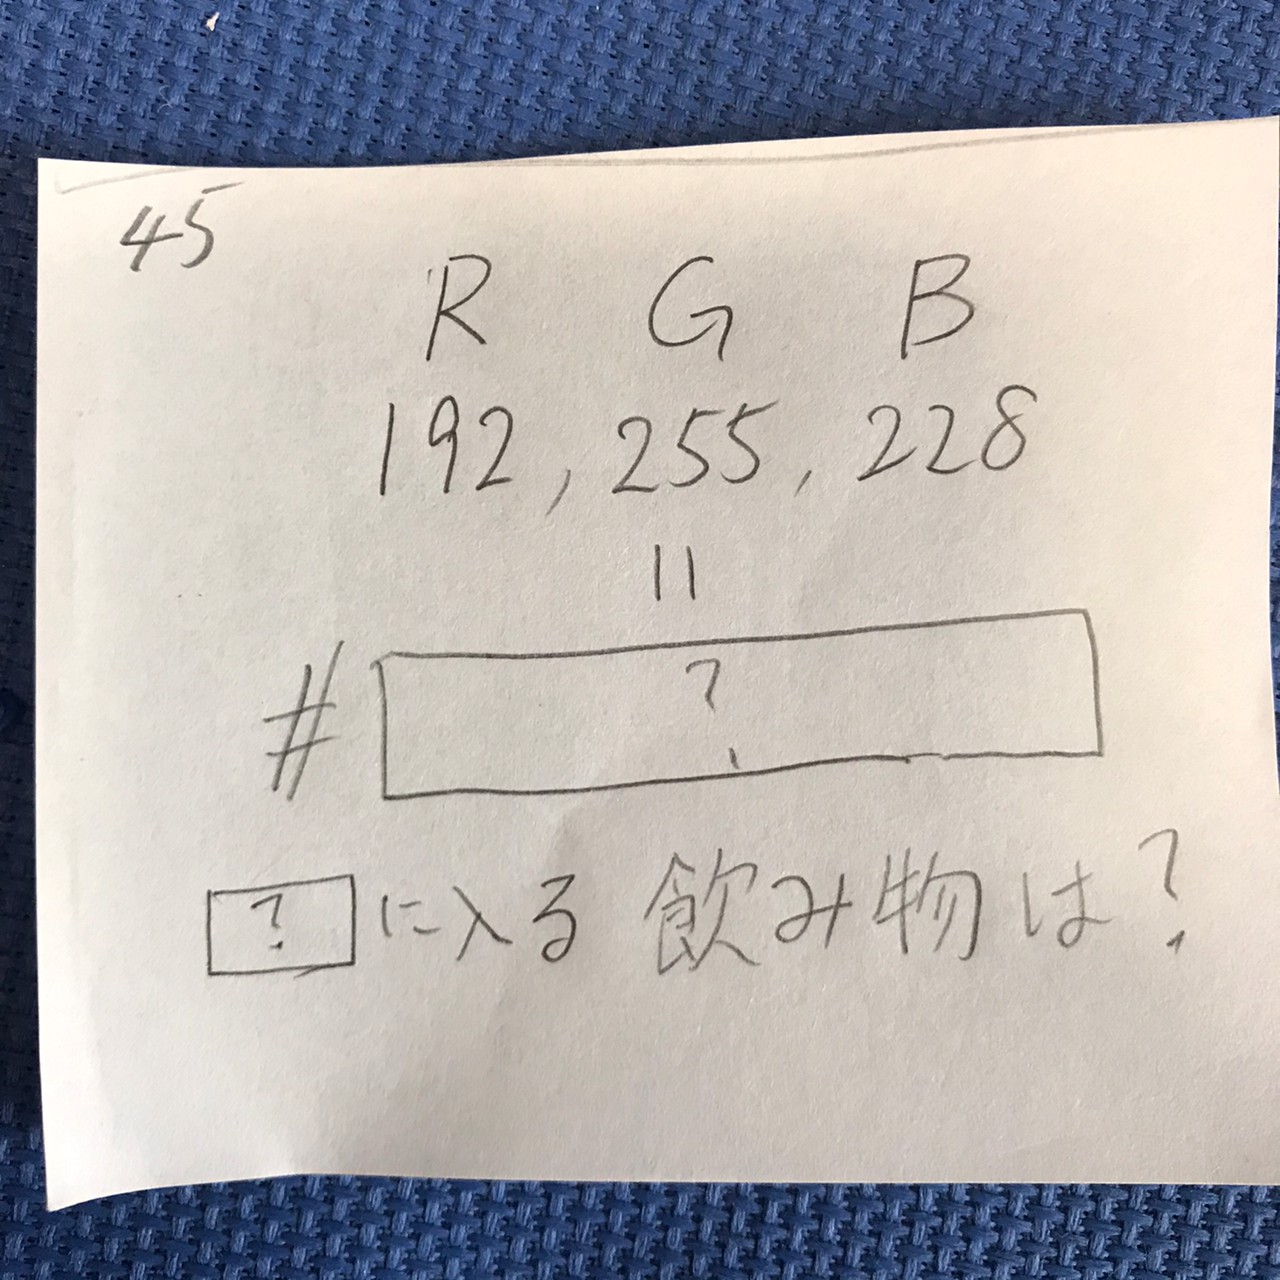 45
R G B
192, 255, 228
=
# ?
?に入る飲み物は?